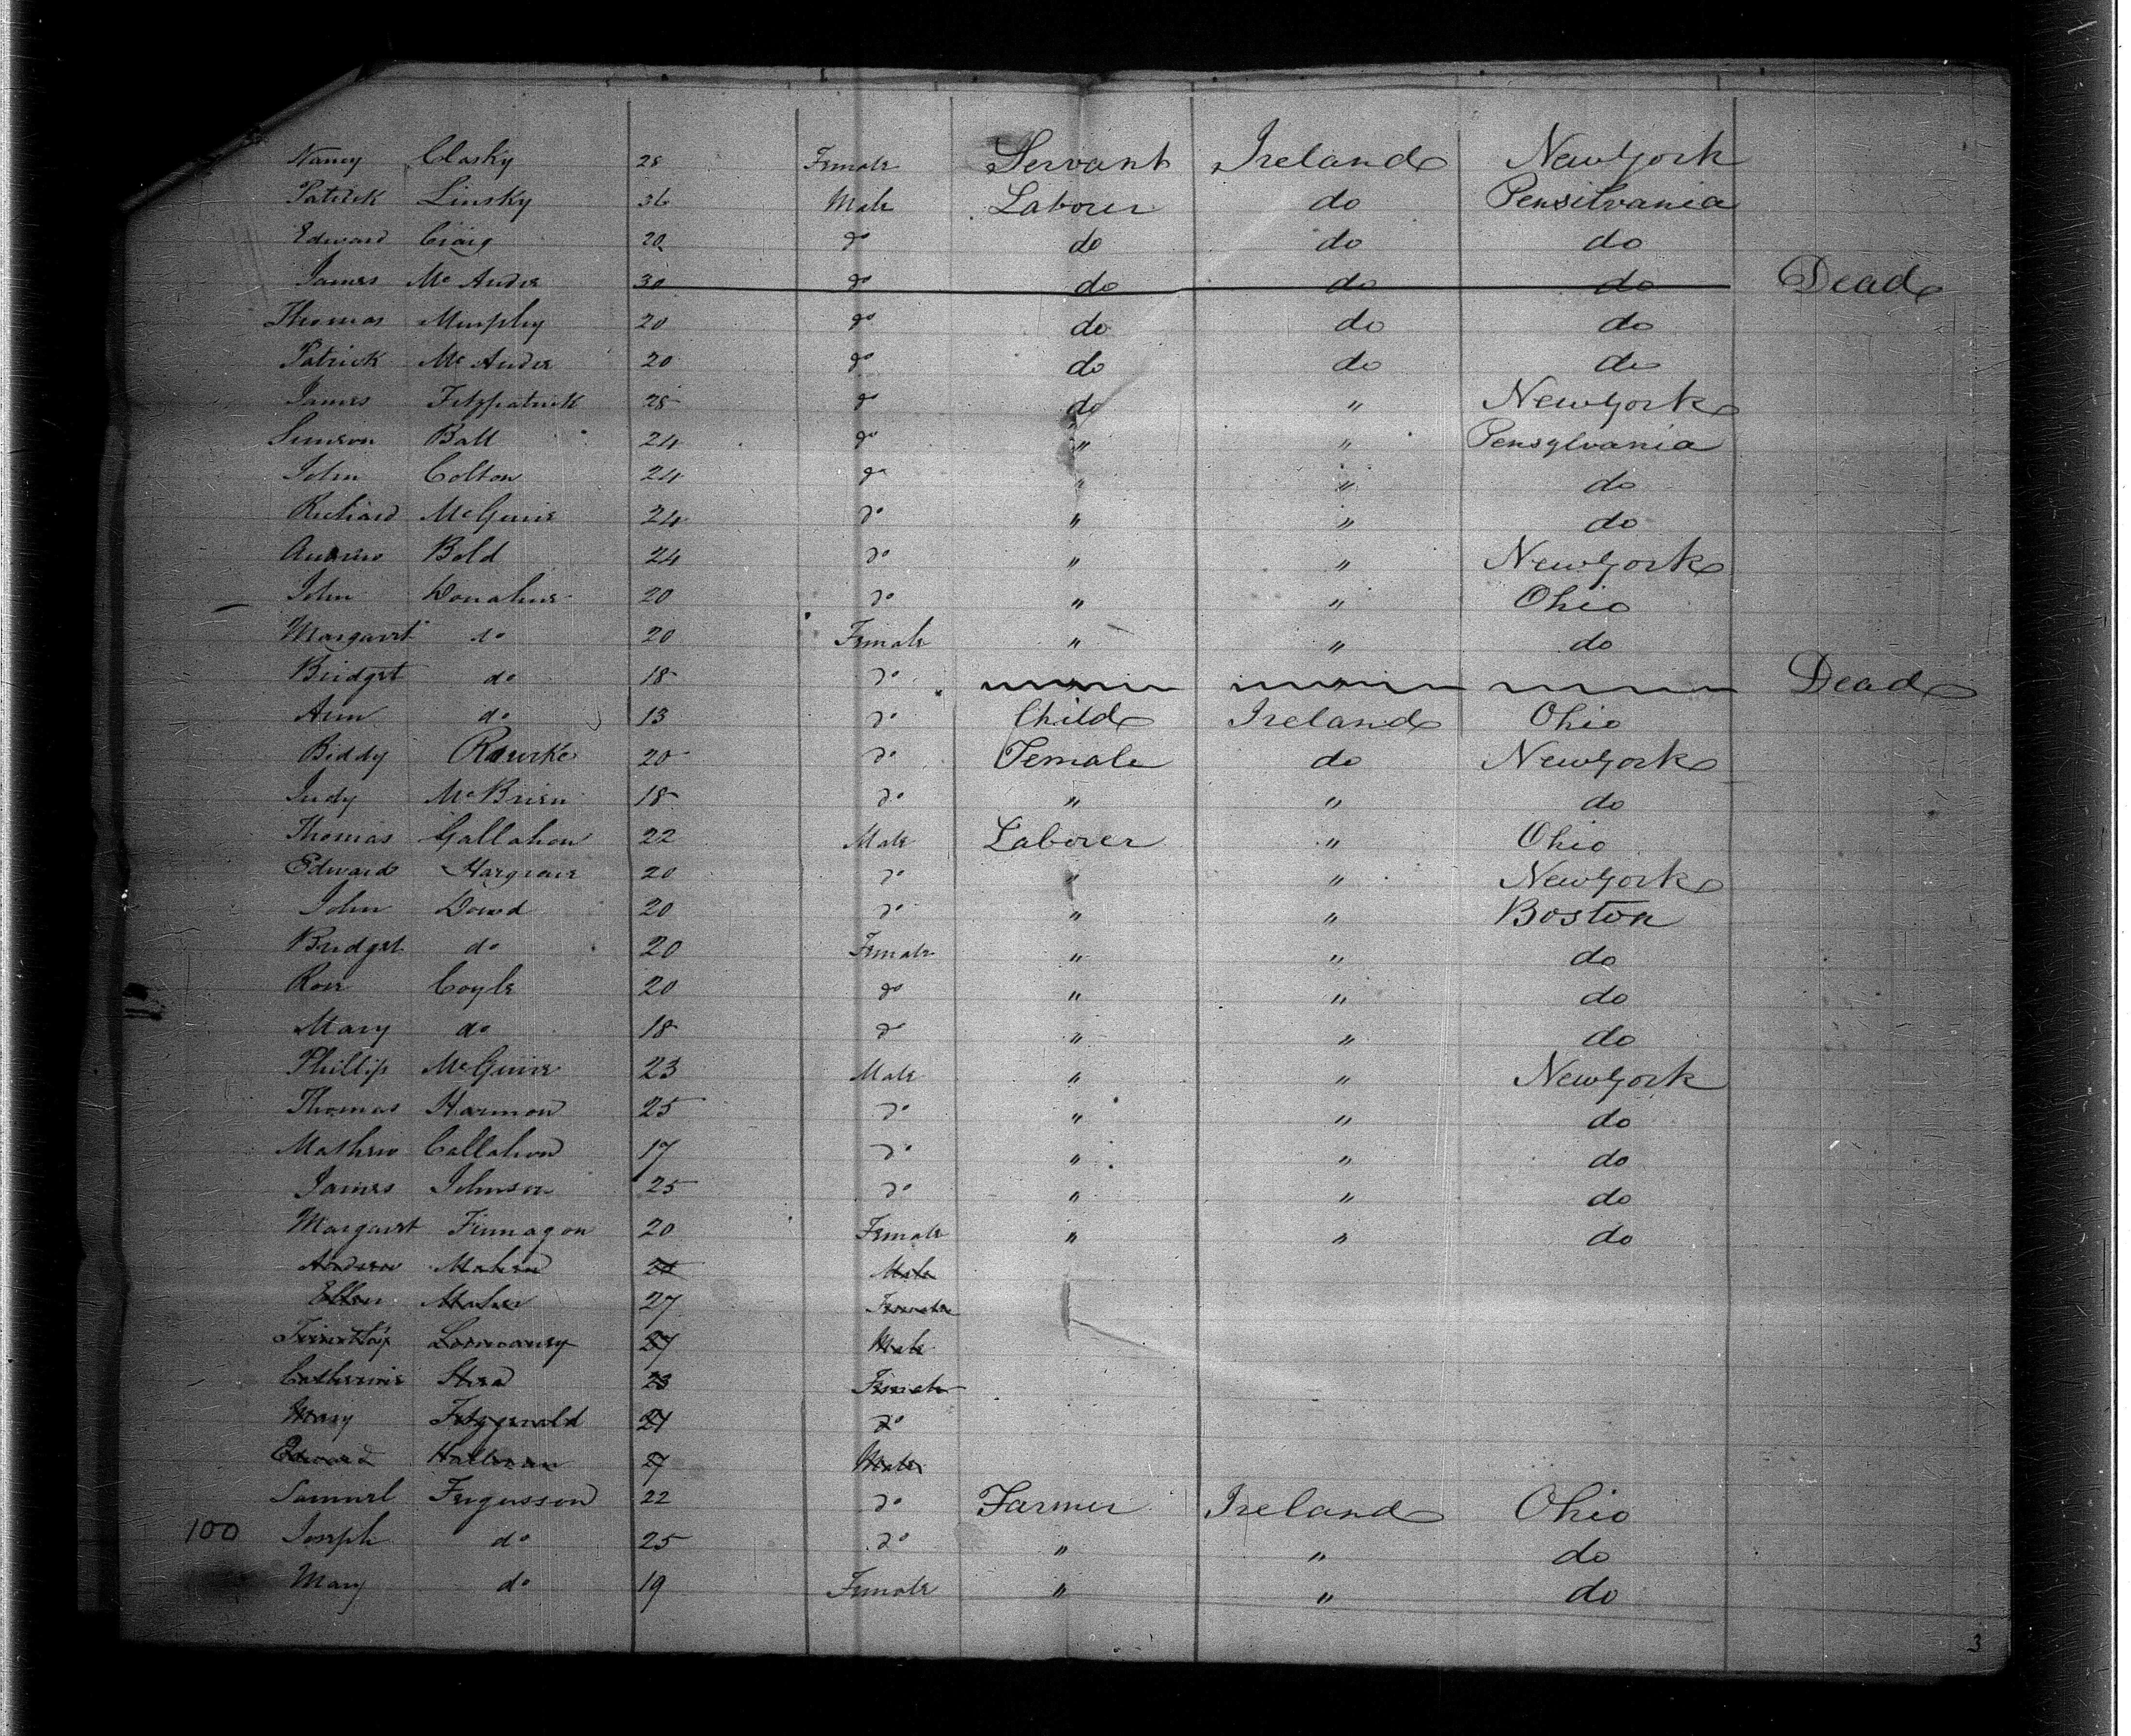 Nancy Clasky 28 Female Servant Ireland New York
Patrick Linsky 36 Male Laborer do Pensilvania
Edward Craig 20 do do do do
James Mc Ander 30 do do do do Dead
Thomas Murphy 20 do do do do
Patrick Mc Ander 20 do do do do
James Fitzpatrick 28 do do " New York
Simeon Ball 24 do " " Pensylvania
John Colton 24 do " " do
Richard McGuire 24 do " " do
Bold 24 do " " New York
John Donahue 20 do " " Ohio
Margaret do 20 Female " " do
Bridget do 18 do Dead
Ann do 13 do Child Ireland Ohio
Biddy Rourke 20 do Female do New York
Judy McBrien 18 do " " do
Thomas Gallahon 22 Male Laborer " Ohio
Edward Hargrave 20 do " " New York
John Dowd 20 do " " Boston
Bridget do 20 Female " " do
Rose Coyle 20 do " " do
Mary do 18 do " " do
Phillip McGuire 23 Male " " New York
Thomas Harmon 25 do " " do
Mathew Callahon 17 do " " do
James Johnson 25 do " " do
Margaret Finnagon 20 Female " " do
Andrew Maher Male
Ellen Maher 27 Female
Timothy 27 Male
Catherine Shea 23 Female
Mary Fitzgerald do
Edward Male
Samuel Fergusson 22 do Farmer Ireland Ohio
100 Joseph do 25 do " " do
Mary do 19 Female " " do
3